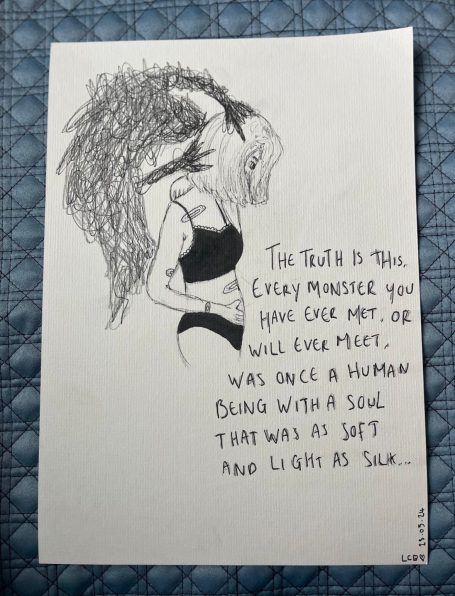 THE TRUTH IS THIS.
EVERY MONSTER YOU
HAVE EVER MET, OR
WILL EVER MEET,
WAS ONCE A HUMAN
BEING WITH A SOUL
THAT WAS AS SOFT
AND LIGHT AS SILK...
LCB 23.03.24